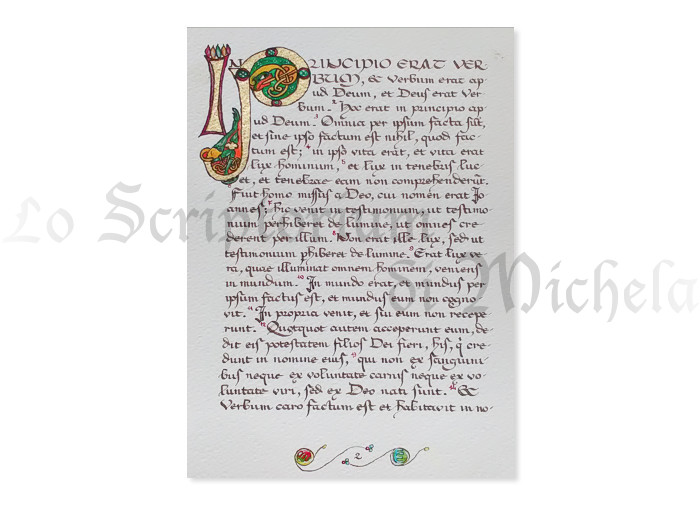 IN PRINCIPIO ERAT VER-
BUM, et Verbum erat ap-
ud Deum, et Deus erat Ver-
bum. ²Hoc erat in principio ap-
ud Deum. ³Omnia per ipsum facta sūt,
et sine ipso factum est nihil, quod fac-
tum est; ⁴in ipso vita erat, et vita erat
lux hominum, ⁵et lux in tenebris luc-
et, et tenebrae eam non comprehenderūt.
Fuit homo missus a Deo, cui nomen erat Jo-
annes; ⁷hic venit in testimonium, ut testimo-
nium perhiberet de lumine, ut omnes cre-
derent per illum. ⁸Non erat ille lux, sed ut
testimonium phiberet de lumine. ⁹Erat lux ve-
ra, quae illuminat omnem hominem, veniens
in mundum. ¹⁰In mundo erat, et mundus per
ipsum factus est, et mundus eum non cogno-
vit. ¹¹In propria venit, et sui eum non recepe-
runt. ¹²Quotquot autem acceperunt eum, de-
dit eis potestatem filios Dei fieri, his, q̄ cre-
dunt in nomine eius, ¹³qui non ex sanguini-
bus neque ex voluntate carnis neque ex vo-
luntate viri, sed ex Deo nati sunt. ¹⁴Et
Verbum caro factum est et habitavit in no-
2
Lo Scriptorium
di Michela